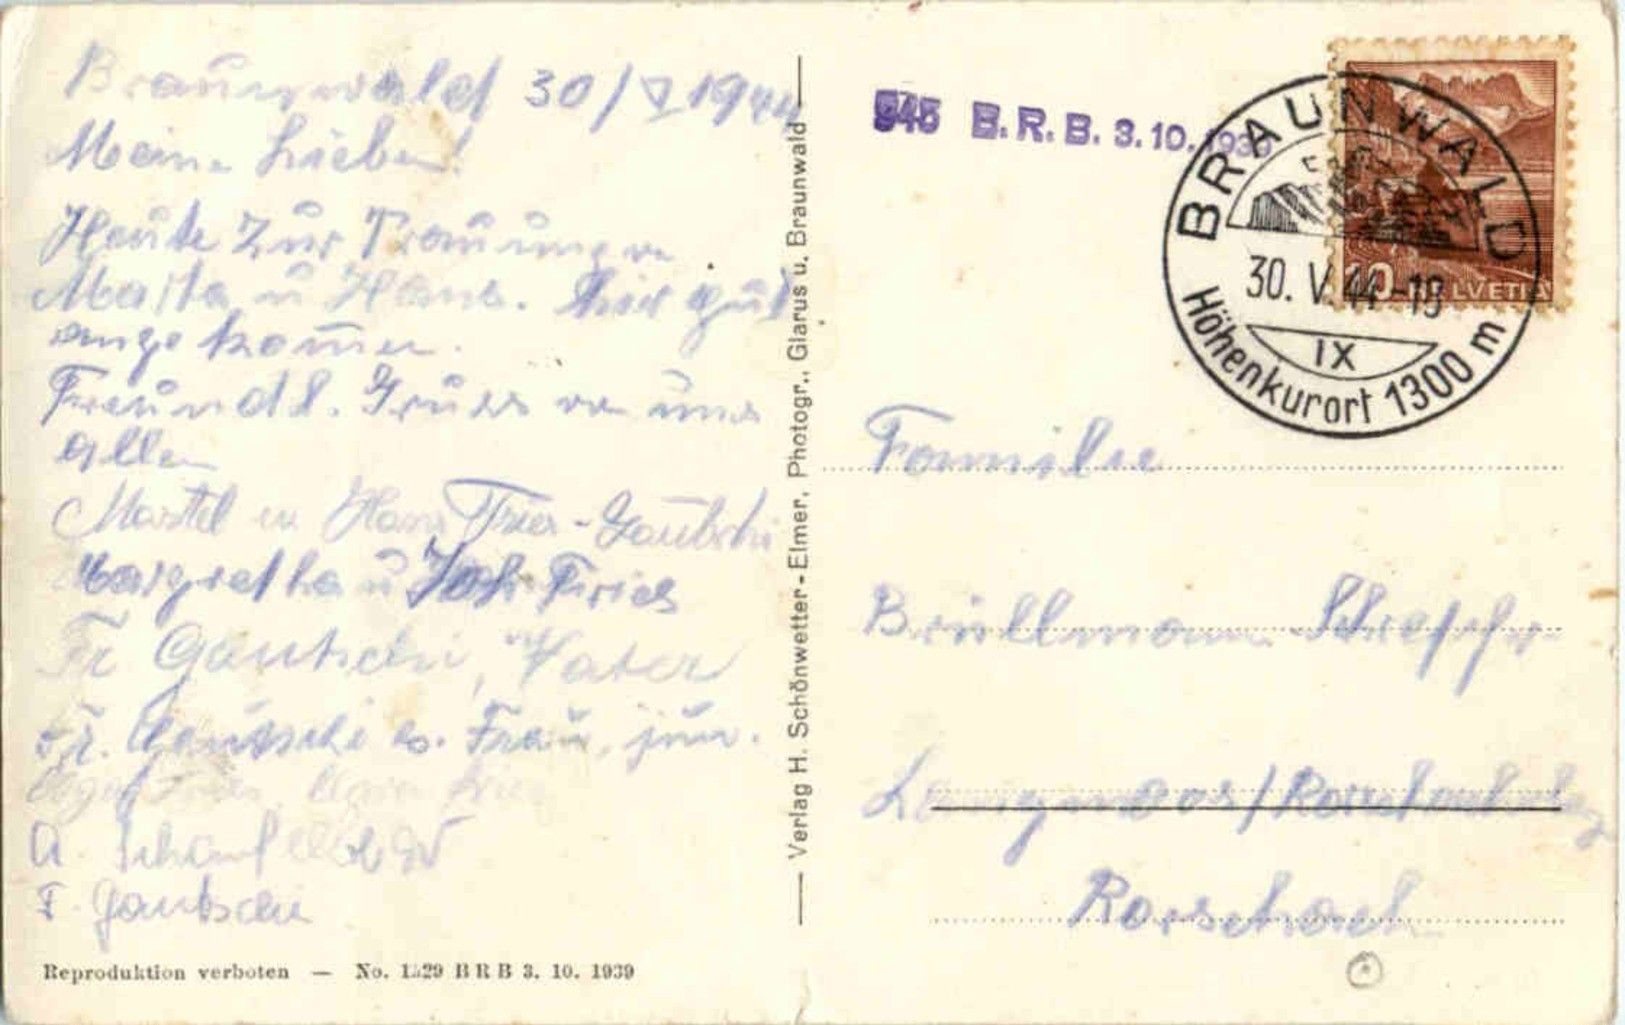 Braunwald 30/V 1944
Meine Lieben!
Heute zur Trauung v
Marta u Hans. Hier gut
angekommen.
Freundl. Gruss von uns
allen
Martel u Hans Fries-Gautschi
Margretha u Joh. Fries
Fr Gautschi, Vater
Fr. Gautschi u. Frau, jun.
A.
F. Gautschi
Reproduktion verboten — No. 1529 BRB 3. 10. 1939
Verlag H. Schönwetter-Elmer, Photogr., Glarus u. Braunwald
945 B. R. B. 3. 10. 1939
BRAUNWALD
30. V. 44-19
IX
Höhenkurort 1300 m
10 HELVETIA
Familie
Brüllmann
Langmoos/Rorschacherberg
Rorschach